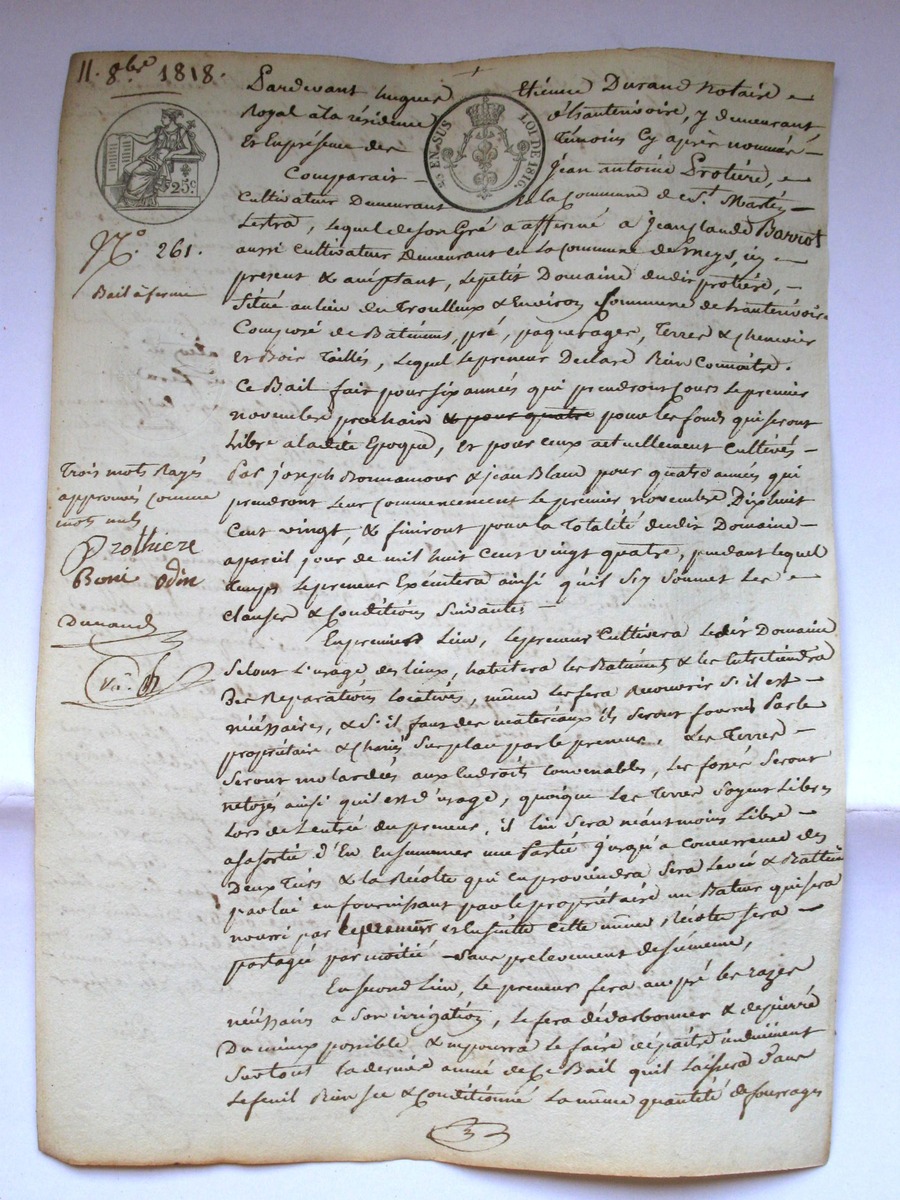 11. 8bre 1818.
25c
EN SUS
LOI DE 1816.
No. 261.
Bail à ferme
Pardevant hugues Etienne Durand Notaire
Royal à la résidence d'hauterivoire, y demeurant,
Et En présence des témoins Cy après nommés
Comparait Jean antoine Protière,
Cultivateur Demeurant En la Commune de St. Martin
Lestra, lequel de son Gré a affermé a Jean Claude Barriot
aussi Cultivateur demeurant en la Commune de meys, icy
present & acceptant, le petit Domaine dudit protière,
Situé au lieu du Troulleux & Environ Commune de hauterivoire
Composé de Bâtimens, pré, paquerages, Terres & chenevier
Et Bois Taillés, lequel le preneur Declare Bien Connoitre.
Ce Bail fait pour six années qui prendront Cours le premier
novembre prochain & pour quatre pour les fonds qui seront
Libre a ladite Epoque, Et pour ceux actuellement Cultivés
Par joseph Bonnamour & jean Blanc pour quatre années qui
prendront leur Commencement le premier novembre Dix huit
Cent vingt, & finiront pour la Totalité dudit Domaine
a pareil jour de mil huit Cent vingt quatre, pendant lequel
temps le preneur Exécutera ainsi qu'il s'y soumet les
clauses & Conditions Suivantes
Trois mots Rayés
approuvés comme
mots nuls
Prothiere
Boni odin
Durand
En premier Lieu, le preneur Cultivera ledit Domaine
Selont L'usage des lieux, habitera les Batiments & les Entretiendra
Des Reparations locatives, même les fera Recouvrir s'il est
néssessaires, & s'il faut des materiaux ils seront fournis Par le
propriétaire & chariés Sur place par le preneur. Les Terres
Seront molardées aux Endroits Convenables, les fossés Seront
netoyés ainsi qu'il est d'usage, quoique les Terres Soyent Libres
Lors de l'entrée du preneur, il lui Sera néantmoins Libre
a la sortie d'En Ensemencer une Partie jusqu'a concurrence des
Deux Tiers & la Récolte qui en proviendra Sera Levée & Battue
par lui en fournissant par le propriétaire un Bateur qui sera
nourri par le preneur & Ensuitte Cette même récolte Sera
partagée par moitié Sans prelevement de semence,
En Second Lieu, le preneur fera au pré les rases
néssessaires a Son irrigation, le fera dédarbonner & depierré
Du mieux possible & ne pourra le faire dépaitre induement
Surtout la derniere année de Ce Bail qu'il laissera dans
le fenil Bien sec & Conditionné la même quantité de fourrages